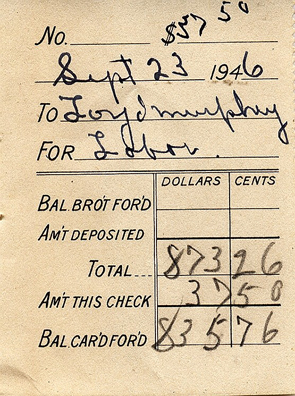 No. $37 50
Sept 23 1946
To Loyd murphy
For Labor.
DOLLARS CENTS
BAL. BRO'T FOR'D
AM'T DEPOSITED
TOTAL.... 873 26
AM'T THIS CHECK 37 50
BAL. CAR'D FOR'D 835 76